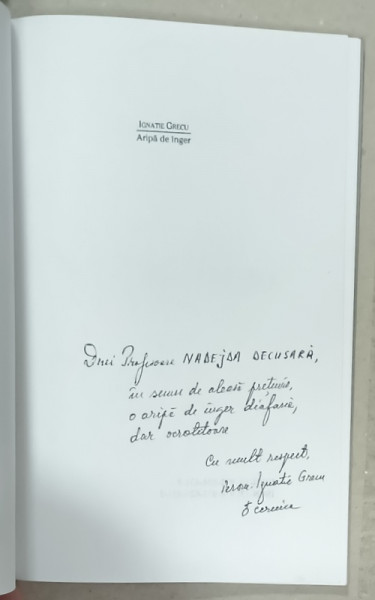 IGNATIE GRECU
Aripă de înger
Dnei Profesoare NADEJDA DECUSARĂ,
în semn de aleasă prețuire,
o aripă de înger diafană,
dar ocrotitoare
Cu mult respect,
Ierom. Ignatie Grecu
Cernica